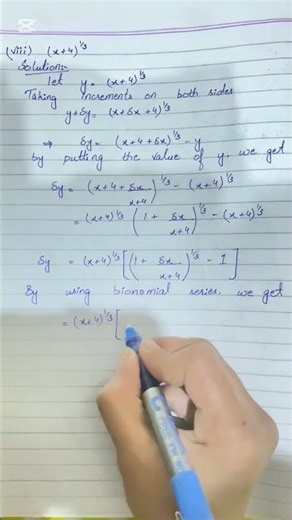 CapCut
(viii) (x+4)^1/3
Solution:-
let y = (x+4)^1/3
Taking increments on both sides
y+δy = (x+δx+4)^1/3
⇒ δy = (x+4+δx)^1/3 - y
by putting the value of y, we get
δy = (x+4+δx/x+4)^1/3 - (x+4)^1/3
= (x+4)^1/3 (1 + δx/x+4)^1/3 - (x+4)^1/3
δy = (x+4)^1/3 [(1 + δx/x+4)^1/3 - 1]
By using bionomial series, we get
= (x+4)^1/3 [